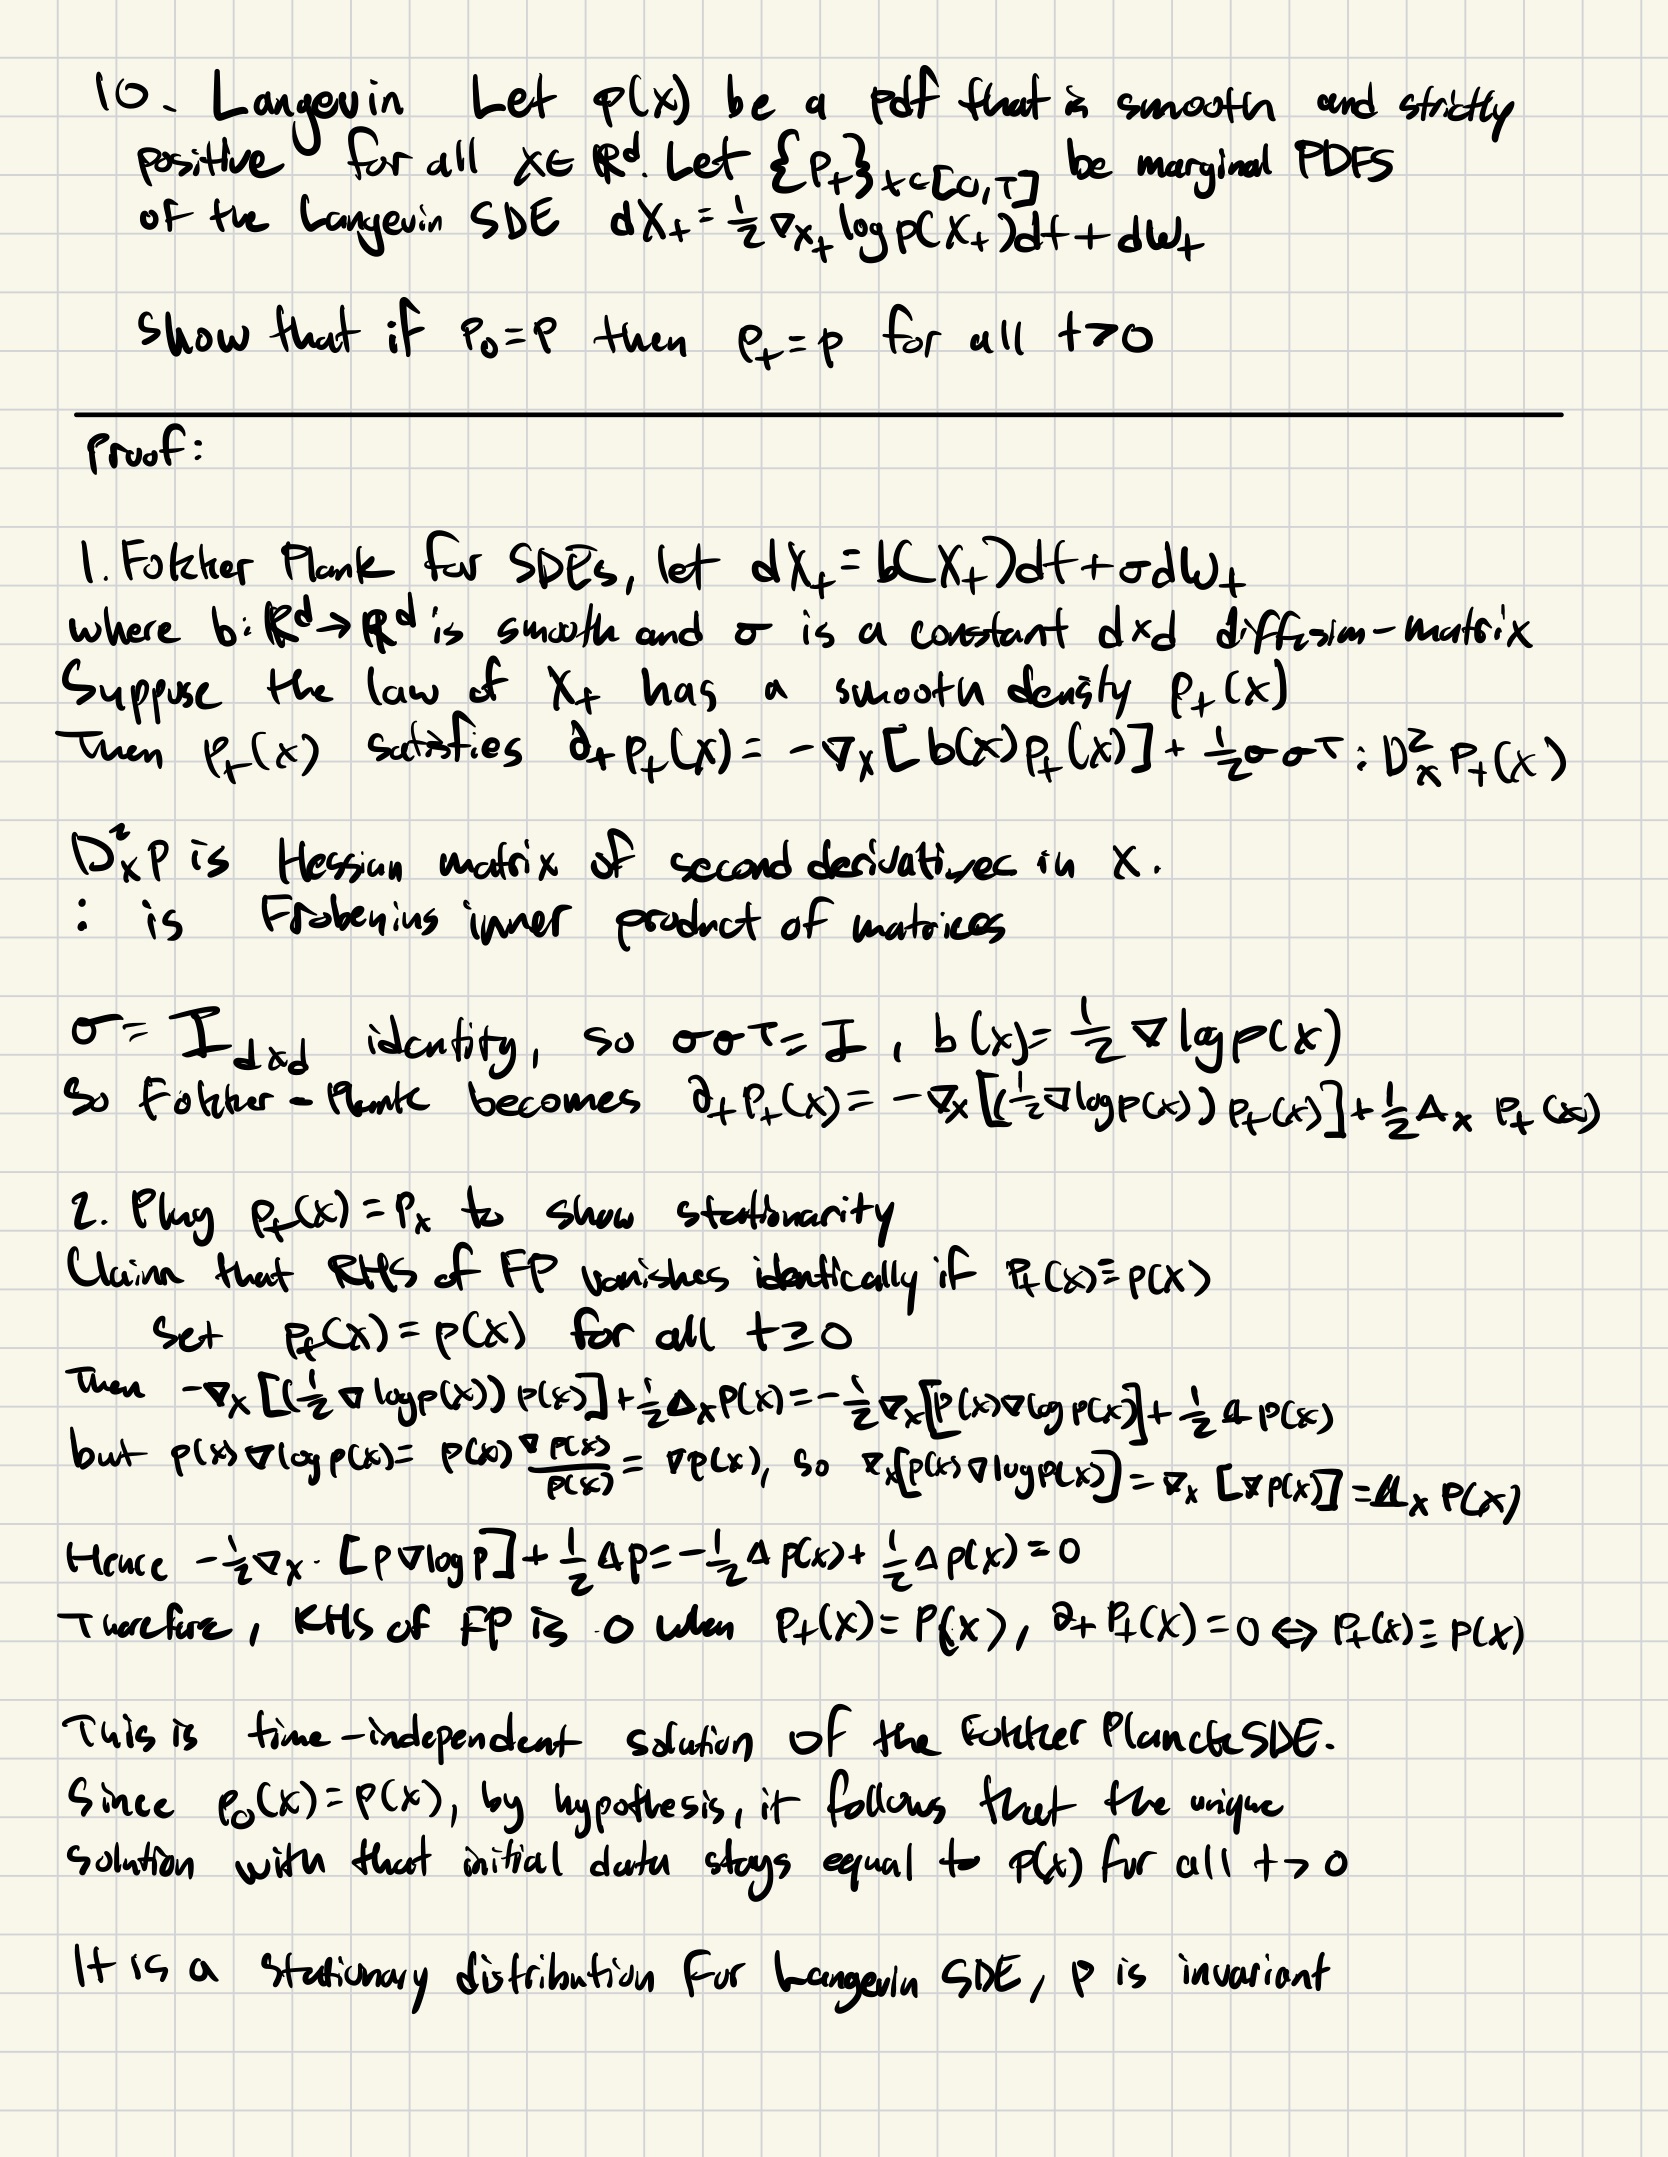 10. Langevin Let p(x) be a pdf that is smooth and strictly
positive for all x∈ℝᵈ. Let {p_t}_{t∈[0,T]} be marginal PDFS
of the Langevin SDE dX_t = ½ ∇_{x_t} log p(X_t)dt + dW_t
Show that if p₀=p then p_t=p for all t>0
Proof:
1. Fokker Plank for SDEs, let dX_t = b(X_t)dt + σdW_t
where b: ℝᵈ→ℝᵈ is smooth and σ is a constant d×d diffusion-matrix
Suppose the law of X_t has a smooth density p_t(x)
Then p_t(x) satisfies ∂_t p_t(x) = -∇_x[b(x)p_t(x)] + ½σσᵀ : D²_x p_t(x)
D²_x p is Hessian matrix of second derivatives in x.
: is Frobenius inner product of matrices
σ = I_{d×d} identity, so σσᵀ = I, b(x) = ½ ∇ log p(x)
So Fokker-Plank becomes ∂_t p_t(x) = -∇_x[(½∇log p(x)) p_t(x)] + ½Δ_x p_t(x)
2. Plug p_t(x) = p_x to show stationarity
Claim that RHS of FP vanishes identically if p_t(x) ≡ p(x)
Set p_t(x) = p(x) for all t≥0
Then -∇_x[(½ ∇ log p(x)) p(x)] + ½Δ_x p(x) = -½∇_x[p(x)∇log p(x)] + ½Δ p(x)
but p(x)∇log p(x) = p(x) ∇p(x)/p(x) = ∇p(x), so ∇_x[p(x)∇log p(x)] = ∇_x[∇p(x)] = Δ_x p(x)
Hence -½∇_x·[p∇log p] + ½Δp = -½Δp(x) + ½Δp(x) = 0
Therefore, RHS of FP is 0 when p_t(x) = p(x), ∂_t p_t(x) = 0 ⇔ p_t(x) ≡ p(x)
This is time-independent solution of the Fokker Planck SDE.
Since p₀(x) = p(x), by hypothesis, it follows that the unique
solution with that initial data stays equal to p(x) for all t>0
It is a stationary distribution for Langevin SDE, p is invariant